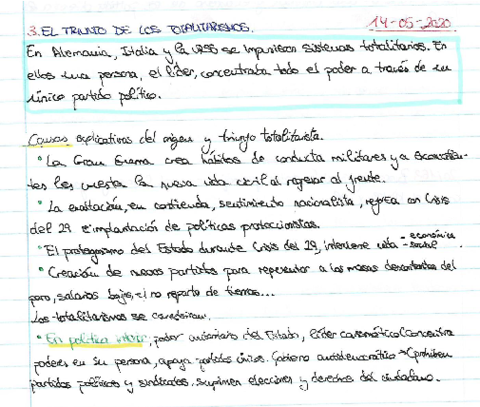 3. EL TRIUNFO DE LOS TOTALITARISMOS. 14-05-2020
En Alemania, Italia y la URSS se impusieron sistemas totalitarios. En
ellos una persona, el líder, concentraba todo el poder a través de un
único partido político.
Causas explicativas del origen y triunfo totalitarista.
• La Gran Guerra crea hábitos de conducta militares y a
les cuesta la nueva vida civil al regresar al frente.
• La exaltación, en contienda, sentimiento nacionalista, Crisis
del 29 e implantación de políticas proteccionistas.
• El protagonismo del Estado durante Crisis del 29, interviene vida - económica
- social
• Creación de nuevos partidos para representar a las masas descontentas del
paro, salarios bajos, no reparto de tierras...
Los totalitarismos se caracterizan.
• En política interior, poder autoritario del Estado, líder carismático (concentra
poderes en su persona, apoya partidos únicos. Gobierno antidemocrático → (prohíben
partidos políticos y sindicatos, suprimen elecciones y derechos del ciudadano.